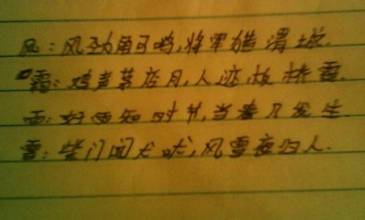 风:风劲角弓鸣,将军猎渭城.
霜:鸡声茅店月,人迹板桥霜.
雨:好雨知时节,当春乃发生
雪:柴门闻犬吠,风雪夜归人.